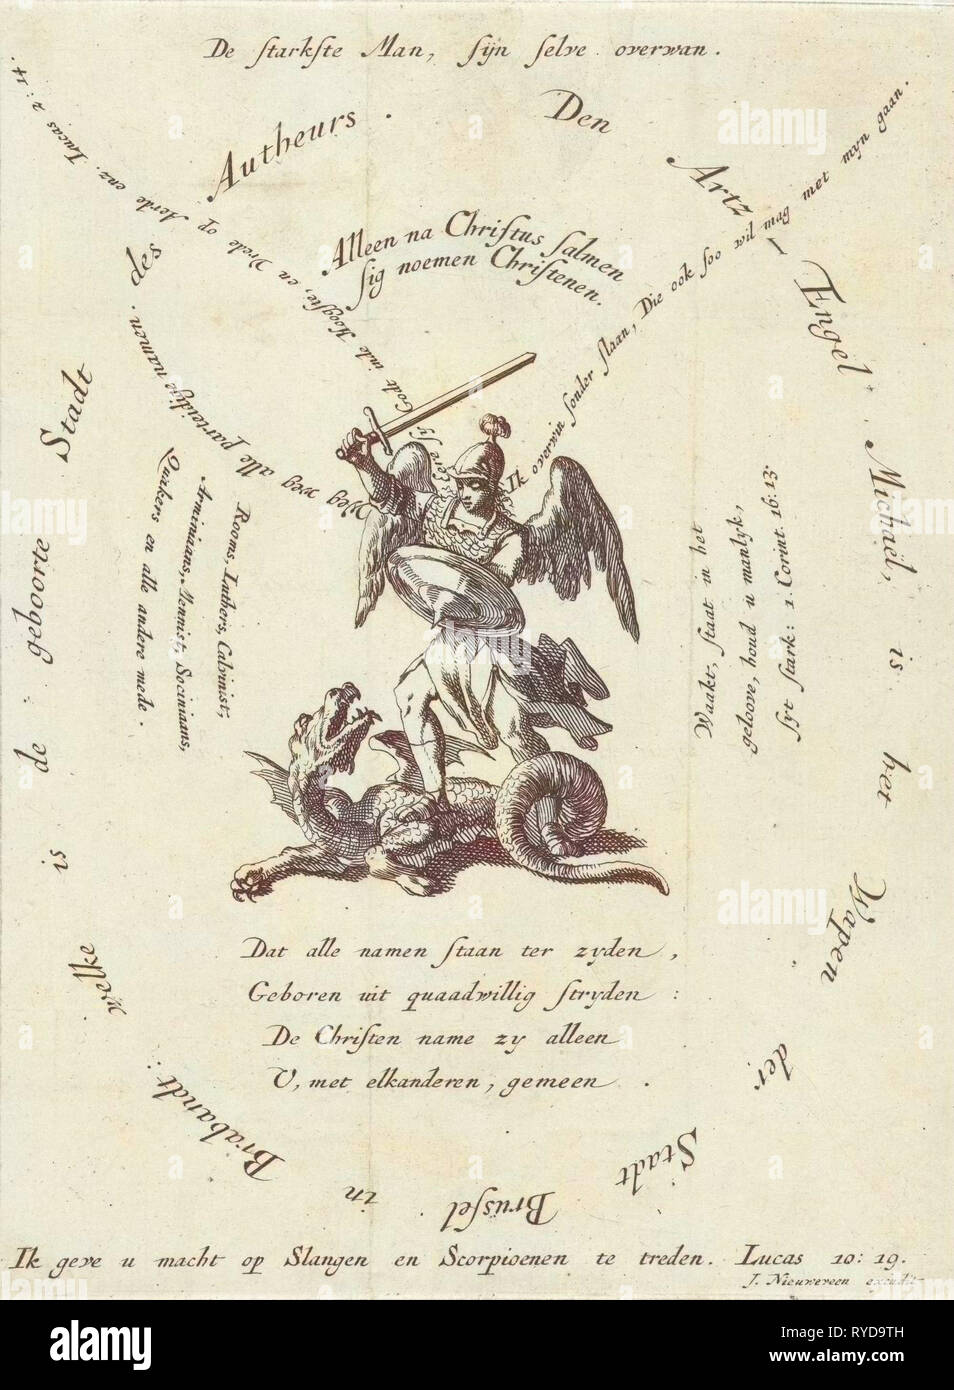 De starkste Man, sijn selve overwan.
Den Artz-Engel Michaël, is het Wapen der Stadt Brussel in Brabandt: welke is de geboorte Stadt des Autheurs.
Alleen na Christus salmen
sig noemen Christenen.
Godt inde Hoogste, en Vrede op Aerde enz. Lucas 2:14.
Ik overwin sonder slaan, Die ook soo wil mag met myn gaan.
Weg weg alle parteidige namen.
Rooms, Luthers, Calvinist,
Arminians, Mennist, Sociniaans,
Quakers en alle andere mede.
Waakt, staat in het
geloove, houd u manlyk,
syt stark: 1. Corint. 16:13.
Dat alle namen staan ter zyden,
Geboren uit quaadwillig stryden:
De Christen name zy alleen
U, met elkanderen, gemeen.
Ik geve u macht op Slangen en Scorpioenen te treden. Lucas 10:19.
J. Nieuwereen excudit
alamy
alamy
Image ID: RYD9TH
www.alamy.com